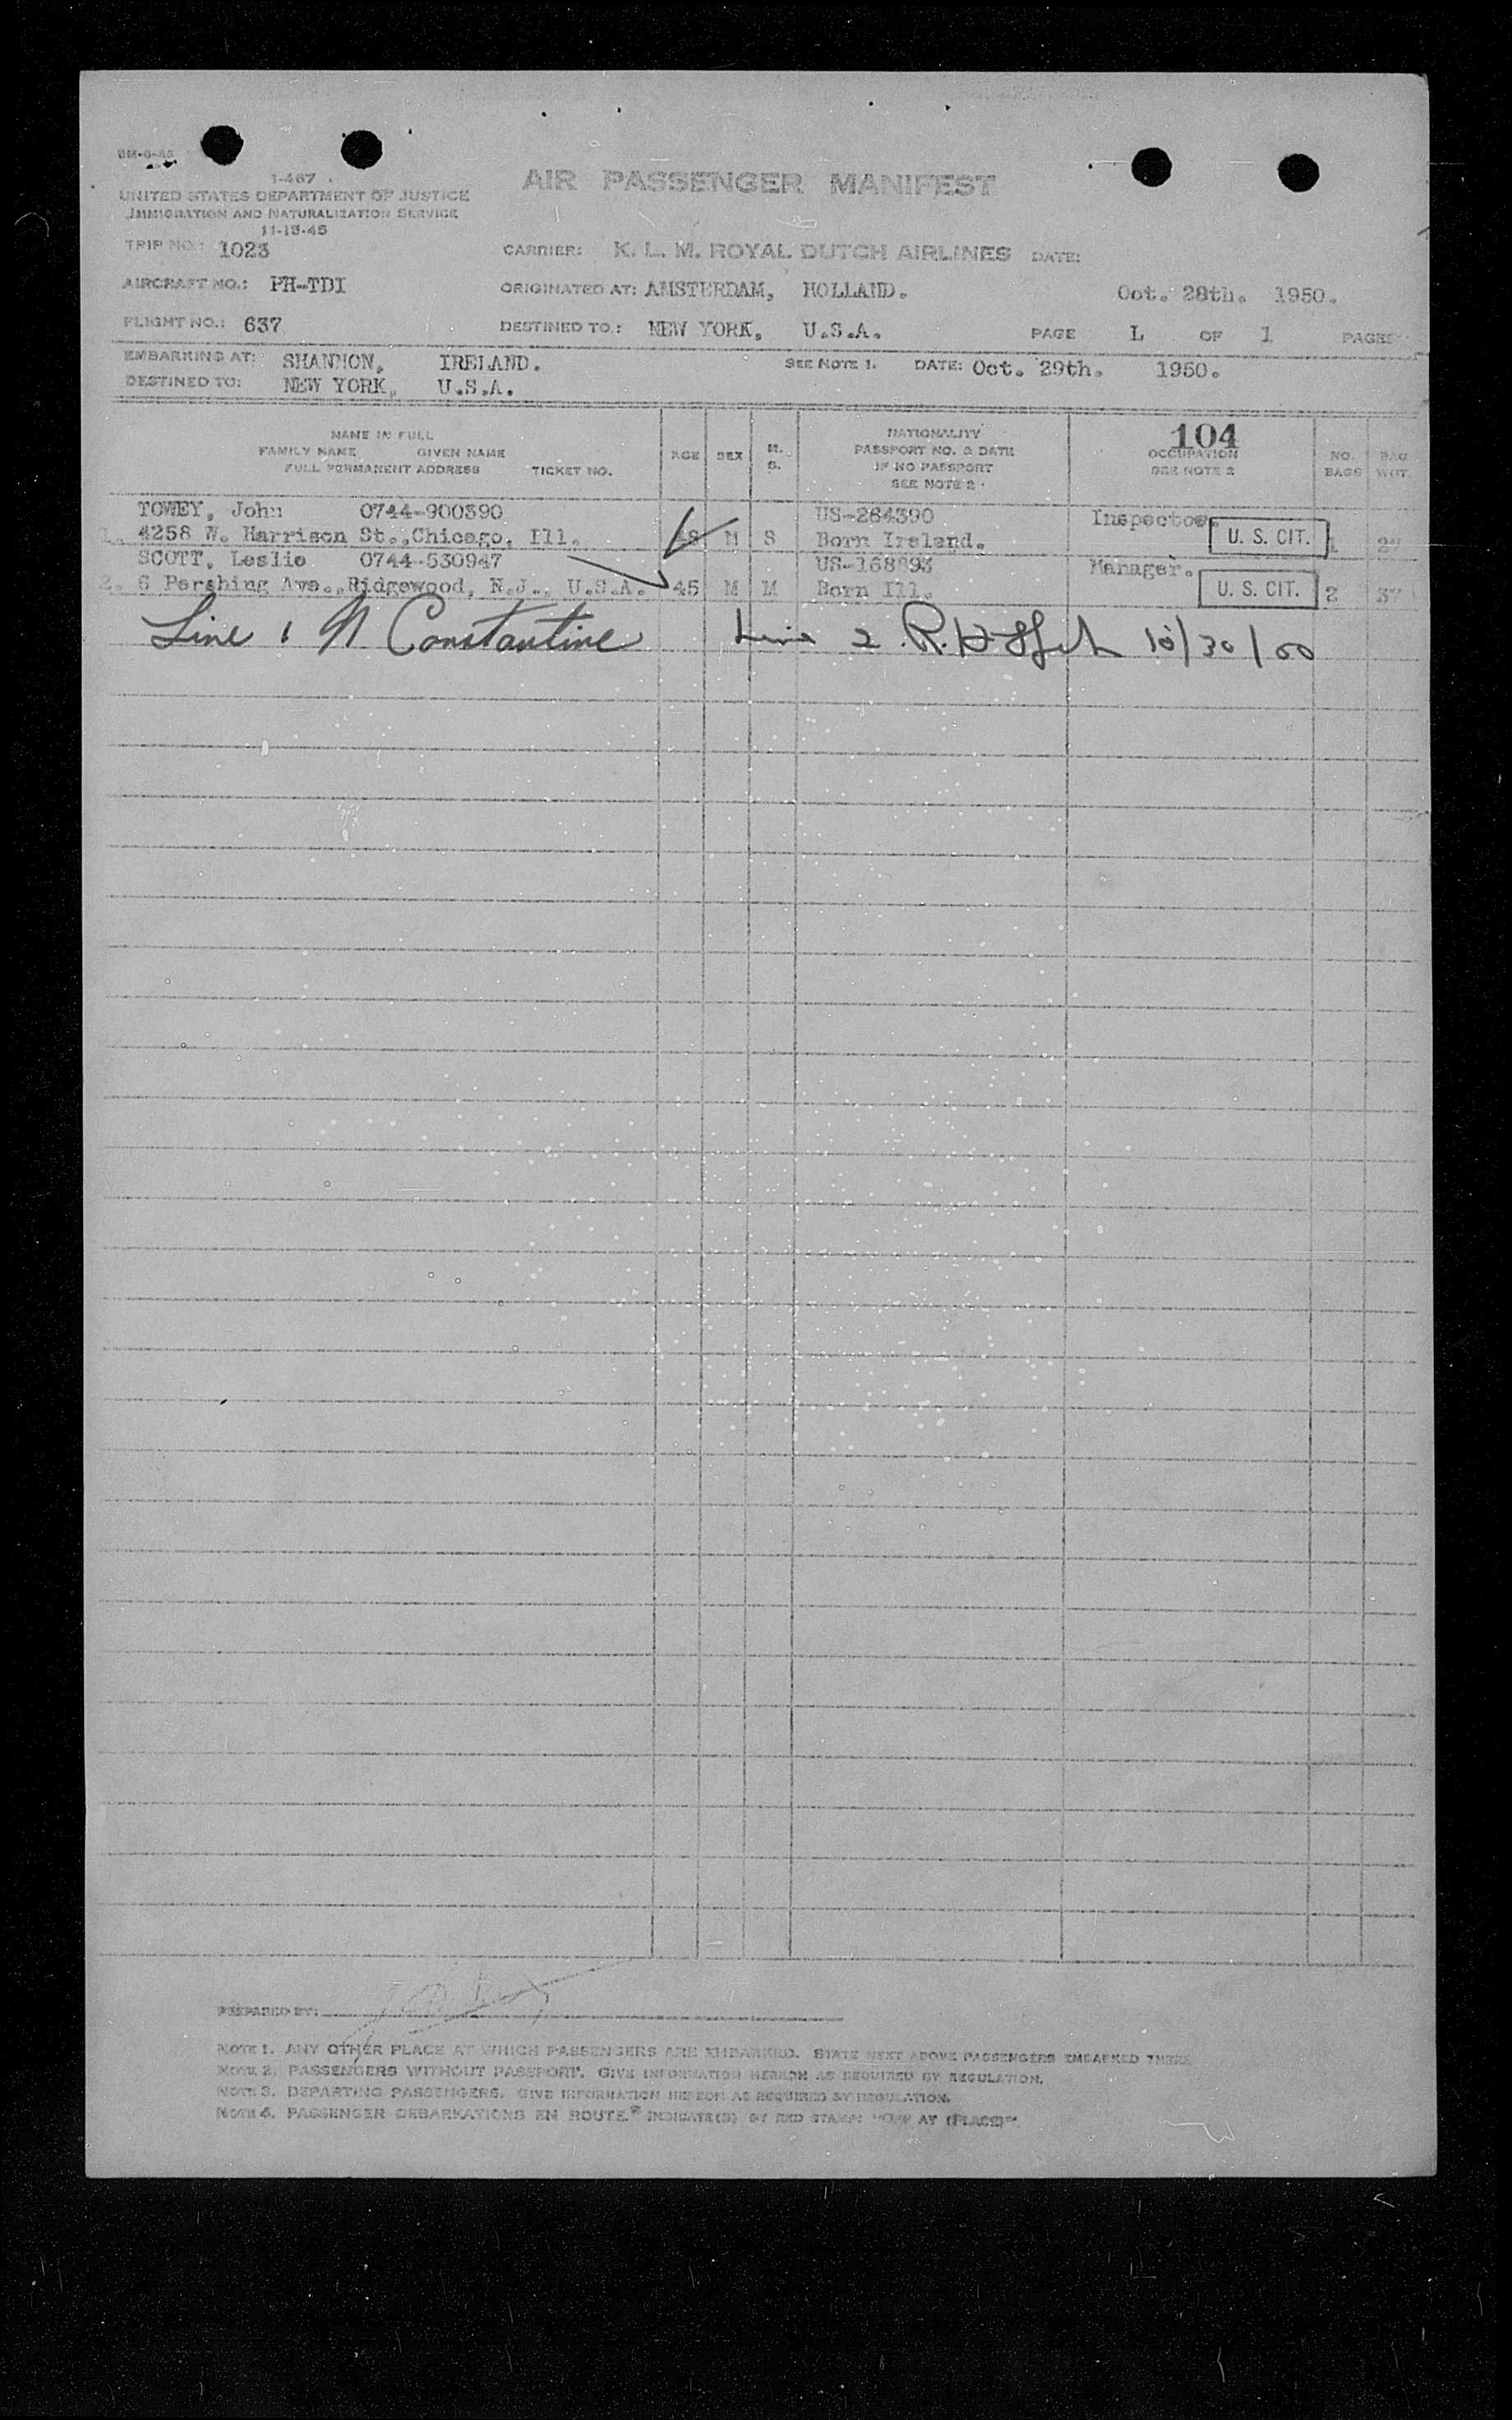 I-467
UNITED STATES DEPARTMENT OF JUSTICE
IMMIGRATION AND NATURALIZATION SERVICE
11-15-45
AIR PASSENGER MANIFEST
TRIP NO.: 1023
CARRIER: K. L. M. ROYAL DUTCH AIRLINES DATE:
AIRCRAFT NO.: PH-TDI
ORIGINATED AT: AMSTERDAM, HOLLAND. Oct. 28th. 1950.
FLIGHT NO.: 637
DESTINED TO.: NEW YORK, U.S.A. PAGE L OF 1 PAGES
EMBARKING AT: SHANNON, IRELAND. SEE NOTE 1. DATE: Oct. 29th. 1950.
DESTINED TO: NEW YORK, U.S.A.
NAME IN FULL
FAMILY NAME GIVEN NAME
FULL PERMANENT ADDRESS TICKET NO.
AGE SEX M. S.
NATIONALITY
PASSPORT NO. & DATE
IF NO PASSPORT
SEE NOTE 2
104
OCCUPATION
SEE NOTE 2
NO. BAGS
BAG WGT.
TOWEY, John 0744-900390 US-264390 Inspector.
1. 4258 W. Harrison St.,Chicago, Ill. M S Born Ireland. U. S. CIT. 1
SCOTT, Leslie 0744-530947 US-168893 Manager.
2. 6 Pershing Ave.,Ridgewood, N.J., U.S.A. 45 M M Born Ill. U. S. CIT. 2 37
Line 1 N Constantine Line 2 10/30/50
PREPARED BY:
NOTE 1. ANY OTHER PLACE AT WHICH PASSENGERS ARE EMBARKED. STATE NEXT ABOVE PASSENGERS EMBARKED THERE
NOTE 2. PASSENGERS WITHOUT PASSPORT. GIVE INFORMATION HEREON AS REQUIRED BY REGULATION.
NOTE 3. DEPARTING PASSENGERS. GIVE INFORMATION HEREON AS REQUIRED BY REGULATION.
NOTE 4. PASSENGER DEBARKATIONS EN ROUTE. INDICATE(D) BY RED STAMP: "OFF AT (PLACE)".